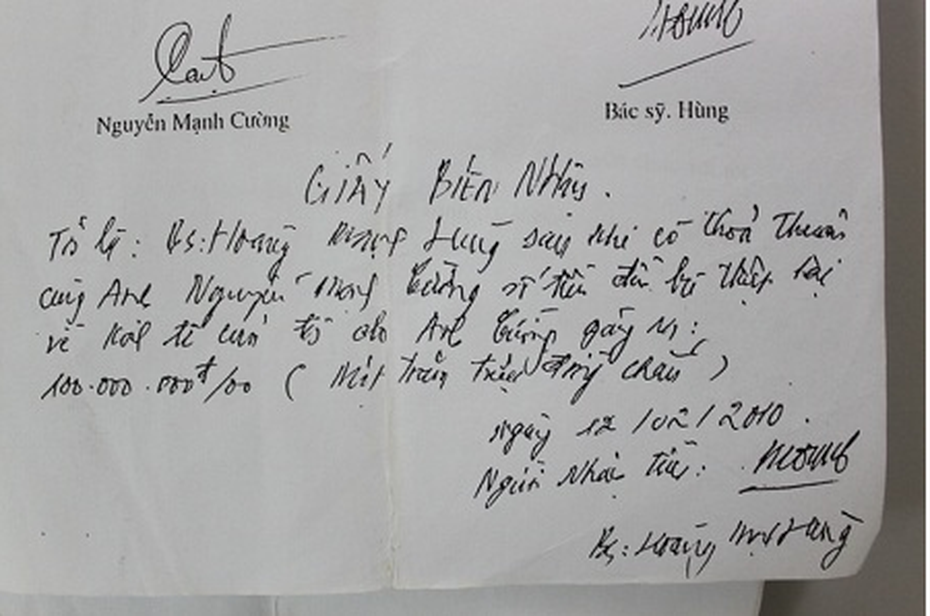 Nguyễn Mạnh Cường
Bác sỹ. Hùng
GIẤY BIÊN NHẬN.
Tôi là: Bs: Hoàng Mạnh Hùng sau khi có thoả thuận
cùng Anh Nguyễn Mạnh Cường số tiền đền bù thiệt hại
về kinh tế của tôi do Anh Cường gây ra:
100.000.000đ/00 ( Một trăm triệu đồng chẵn )
Ngày 12/02/2010.
Người Nhận tiền:
Bs: Hoàng Mạnh Hùng